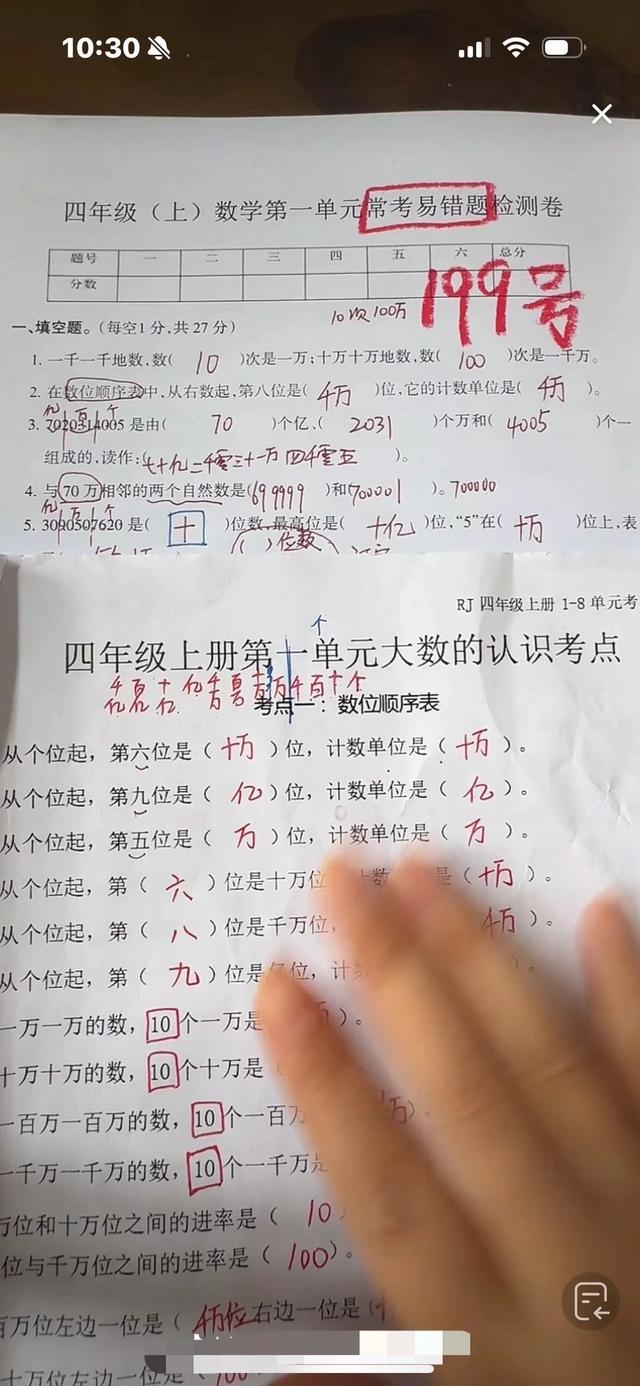 10:30
四年级（上）数学第一单元常考易错题检测卷
题号 一 二 三 四 五 六 总分
分数
199号
10次100万
一、填空题。（每空1分，共27分）
1. 一千一千地数，数( 10 )次是一万；十万十万地数，数( 100 )次是一千万。
2. 在数位顺序表中，从右数起，第八位是( 千万 )位，它的计数单位是( 千万 )。
亿 万 个
3. 7020314005 是由( 70 )个亿、( 2031 )个万和( 4005 )个一
组成的，读作：( 七十亿二千零三十一万四千零五 )。
4. 与70万相邻的两个自然数是(699999)和(700001)。700000
亿 万 个
5. 3090507620 是( 十 )位数，最高位是( 十亿 )位，“5”在( 十万 )位上，表
( )位数
RJ 四年级上册 1-8 单元考
个
四年级上册第一单元大数的认识考点
千亿 百亿 十亿 亿 千万 百万 十万 万 千 百 十 个
考点一：数位顺序表
从个位起，第六位是（ 十万 ）位，计数单位是（ 十万 ）。
从个位起，第九位是（ 亿 ）位，计数单位是（ 亿 ）。
从个位起，第五位是（ 万 ）位，计数单位是（ 万 ）。
从个位起，第（ 六 ）位是十万位 计数 是（十万）。
从个位起，第（ 八 ）位是千万位， 千万）。
从个位起，第（ 九 ）位是亿位，计数 ）。
一万一万的数，10个一万是 万）。
十万十万的数，10个十万是（
一百万一百万的数，10个一百万 万）。
一千万一千万的数，10个一千万是
万位和十万位之间的进率是（ 10 ）
位与千万位之间的进率是（ 100）。
百万位左边一位是（ 千万位 右边一位是（十
十万位左边一位是（ 100